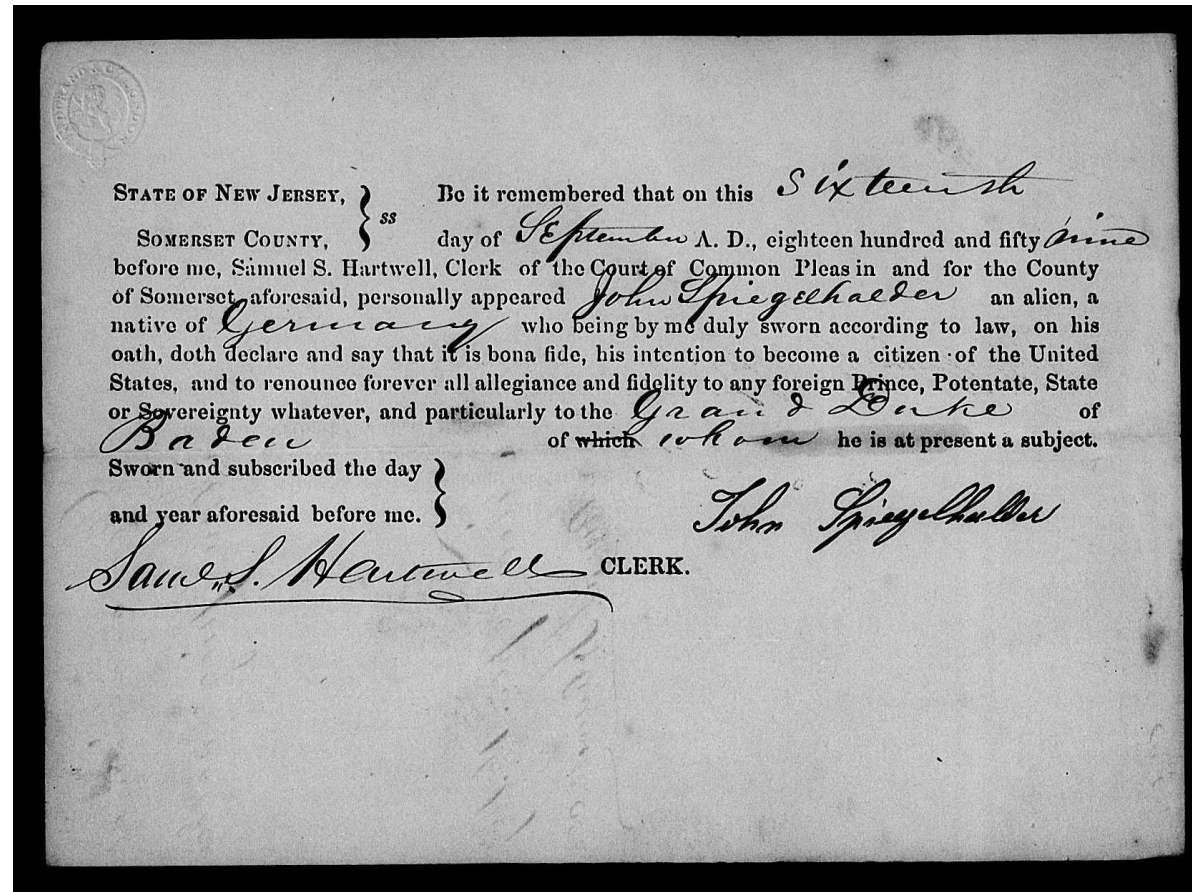 STATE OF NEW JERSEY, } ss Be it remembered that on this Sixteenth
SOMERSET COUNTY, day of September A. D., eighteen hundred and fifty nine
before me, Samuel S. Hartwell, Clerk of the Court of Common Pleas in and for the County
of Somerset aforesaid, personally appeared John Spiegelhalder an alien, a
native of Germany who being by me duly sworn according to law, on his
oath, doth declare and say that it is bona fide, his intention to become a citizen of the United
States, and to renounce forever all allegiance and fidelity to any foreign Prince, Potentate, State
or Sovereignty whatever, and particularly to the Grand Duke of
Baden of which whom he is at present a subject.
Sworn and subscribed the day }
and year aforesaid before me. John Spiegelhalder
Saml. S. Hartwell CLERK.